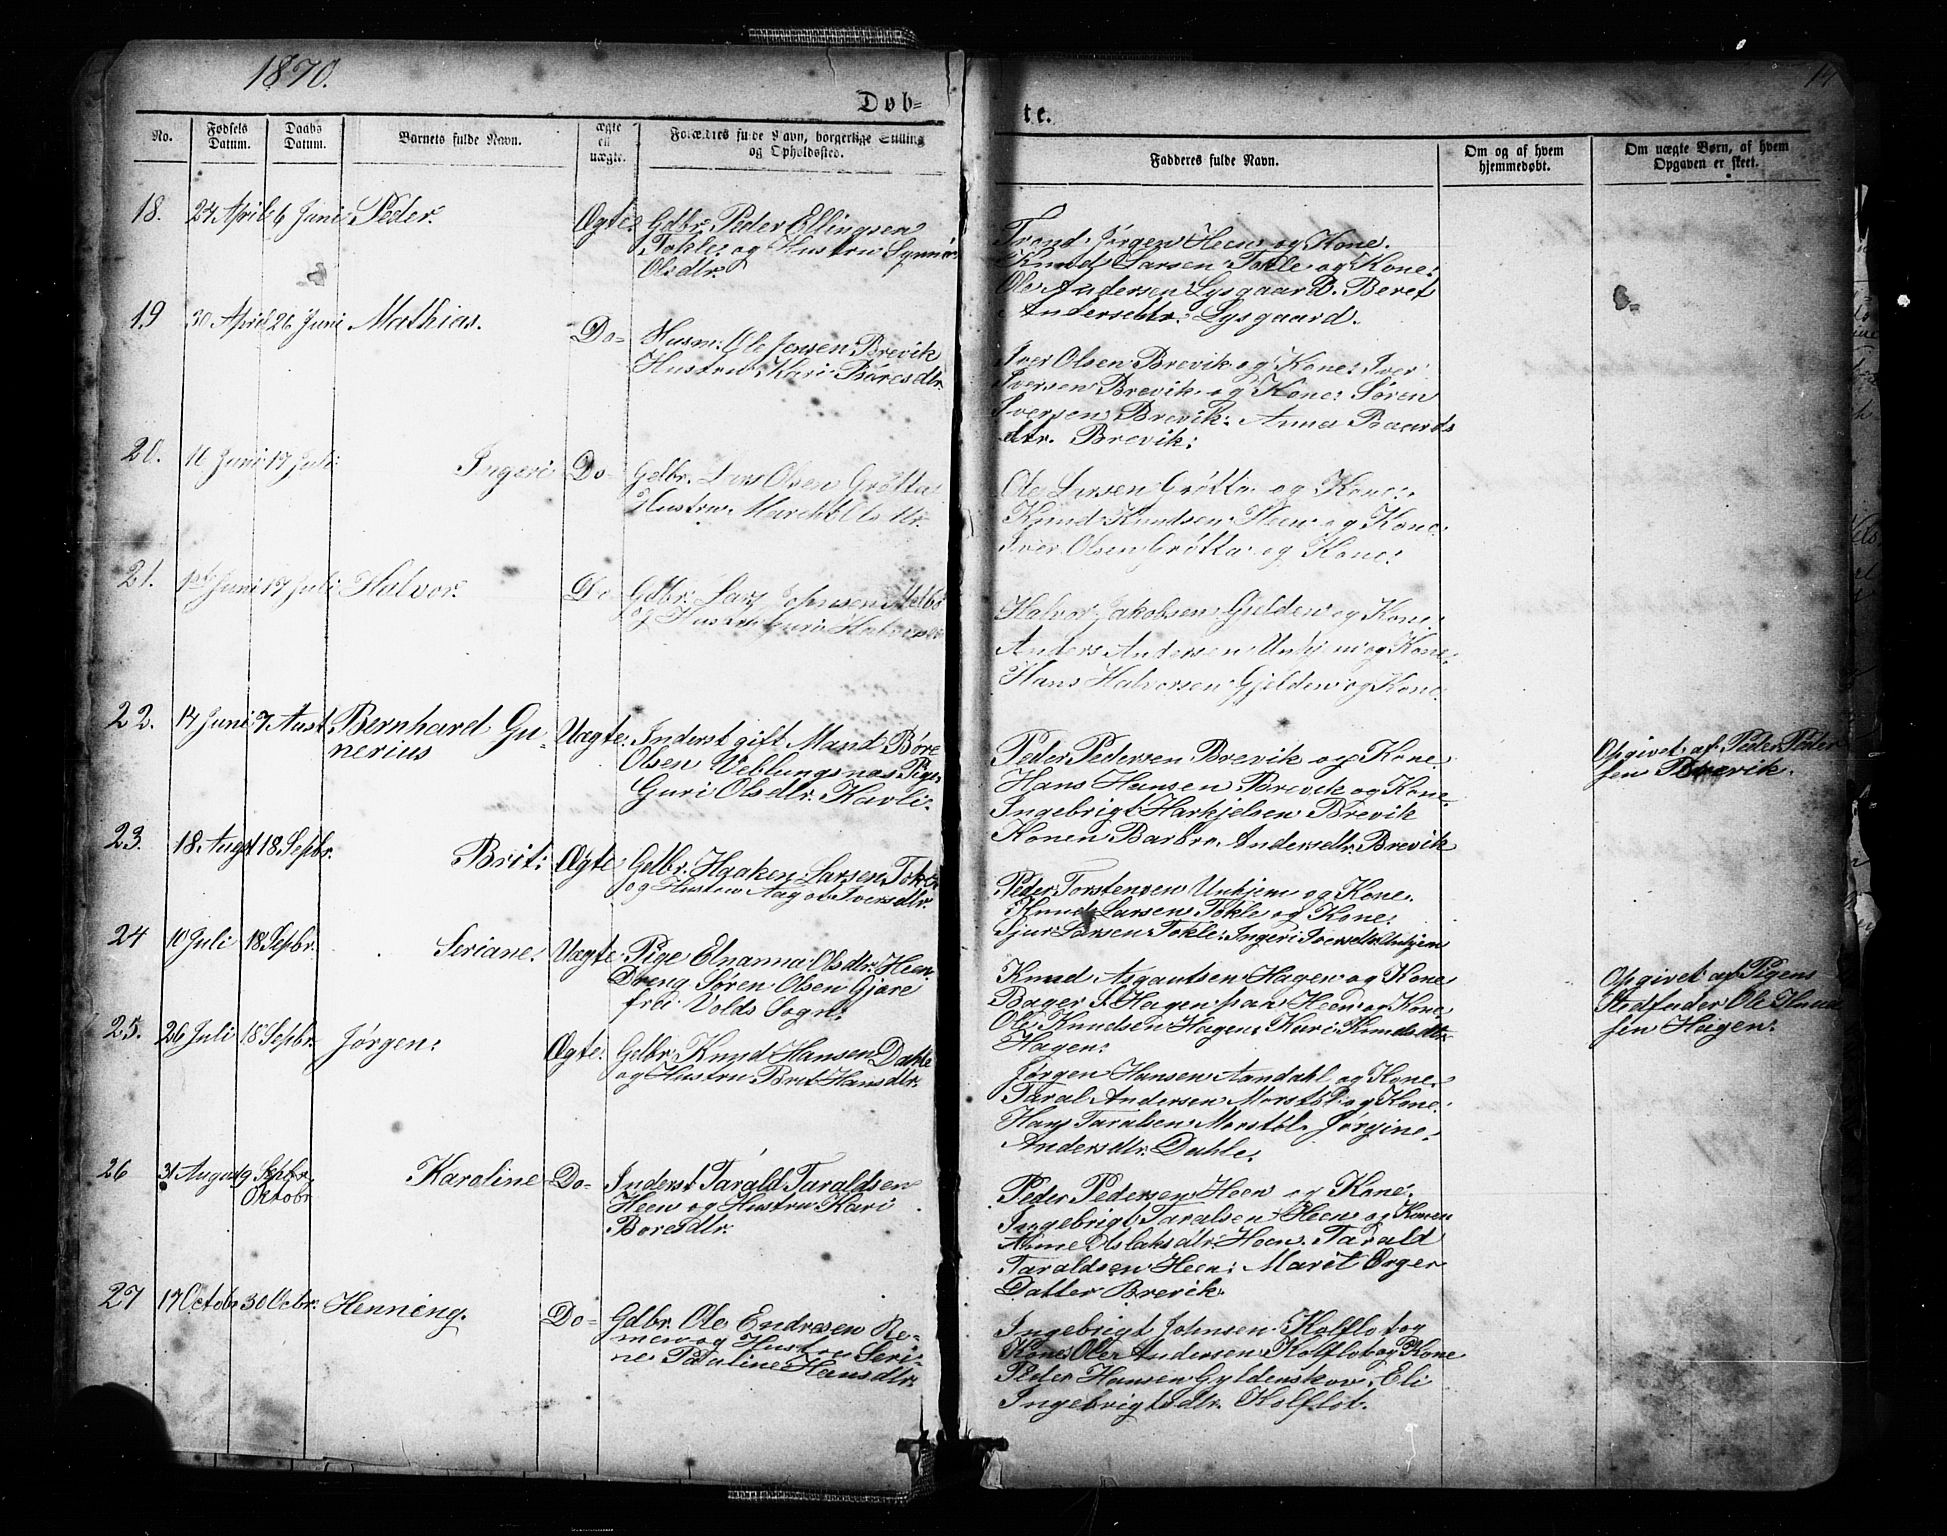 1870.
14
Døb=
te.
No.
Fødsels Datum.
Daabs Datum.
Barnets fulde Navn.
ægte ell uægte.
Forældres fulde Navn, borgerlige Stilling og Opholdssted.
Fadderes fulde Navn.
Om og af hvem hjemmedøbt.
Om uægte Børn, af hvem Opgaven er skeet.
18. 24 April 6 Juni Peder. Ægte: Gdbr: Peder Ellingsen
Tokle: og Hustru Synnør
Olsdtr.
Trond Jørgen Heen og Kone.
Knud Larsen Tokle og Kone:
Ole Andersen Lysgaard. Beret
Andersdtr. Lysgaard.
19 30 April 26 Juni Mathias. Do= Husm: Ole Jensen Brevik
Hustru Kari Børesdtr.
Iver Olsen Brevik og Kone: Iver
Iversen Brevik og Kone: Søren
Iversen Brevik: Anna Baards
dtr. Brevik:
20. 10 Juni 17 Juli Ingeri Do- Gdbr. Lars Olsen Grøtta
Hustru
Ole Larsen Grøtta og Kone:
Knud Knudsen Heen og Kone:
Iver Olsen Grøtta og Kone:
21. Juni 17 Juli Halvor. Do Gdbr: Lars Johnsen
og Hustru Guri
Halvor Jakobsen Gjelden og Kone:
Anders Andersen Unhjem og Kone.
Hans Halvorsen Gjelden og Kone.
22. 14 Juni 7 Aust Bernhard Gu-
nerius
Uægte. Inderst gift Mand Børe
Olsen Veblungsnæs Pige
Guri Olsdtr. Kavli:
Peder Pedersen Brevik og Kone.
Hans Hansen Brevik og Kone.
Ingebrigt Harkjelsen Brevik
Konen Barbro Andersdtr. Brevik
Opgivet af Peder Peder
sen Brevik.
23. 18. August 18. Septbr. Brit: Ægte Gdbr. Haaken Larsen Tokle
og Hustru Aagot Iversdtr.
Peder Torstensen Unhjem og Kone.
Knud Larsen Tokle og Kone.
Sjur Larsen Tokle: Ingeri Iversdtr. Unhjem
24 10 Juli 18 Septbr. Seriane: Uægte Pige Elnanna Olsdtr. Heen
Dreng Søren Olsen Gjøre
fra Volds Sogn:
Knud Asgautsen Hagen og Kone
Bager S. Hagen paa Heen og Kone
Ole Knudsen Hagen: Kari Knudsdtr
Hagen:
Opgivet af Pigens
Stedfader Ole Knud
sen Hagen:
25. 26 Juli 18 Septbr. Jørgen: Ægte: Gdbr. Knud Hansen Dahle
og Hustru Bret Hansdtr.
Jørgen Hansen Aandahl og Kone.
Taral Andersen Morstøl og Kone.
Hans Taralsen Morstøl Jørgine
Andersdtr. Dahle.
26 31 August 9 Septbr.
Oktobr
Karoline Do- Inderst Tarald Taraldsen
Heen og Hustru Kari
Boresdtr.
Peder Pedersen Heen og Kone.
Ingebrigt Taralsen Heen og Konen
Anne Olslaksdtr. Heen. Tarald
Taraldsen Heen: Marit Ørger
Datter Brevik.
27 17 Octobr 30 Ocbr: Henning. Do- Gdbr. Ole Endresen Re-
men og Hustru Seri-
ne Pauline Hansdtr.
Ingebrigt Johnsen Kolflot og
Kone: Ole Andersen Kolflot og Kone
Peder Hansen Gyldenskov. Eli
Ingebrigtsdtr. Kolflot.